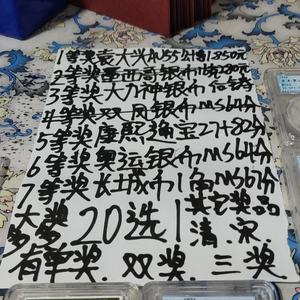 1等奖袁大头AU55分价1350元
2等奖墨西哥银币
3等奖大力神银币
4等奖双凤银币MS64分
5等奖康熙通宝27+82分
6等奖奥运银币MS64分
7等奖长城币1角MS67分
大奖多多
20选1
其它奖品清.宋.
有单奖.双奖.三奖.